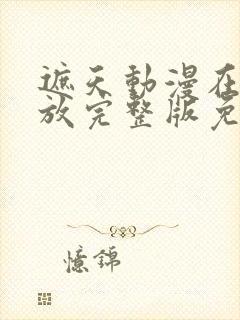 遮天動漫在
放完整版免
憶錦